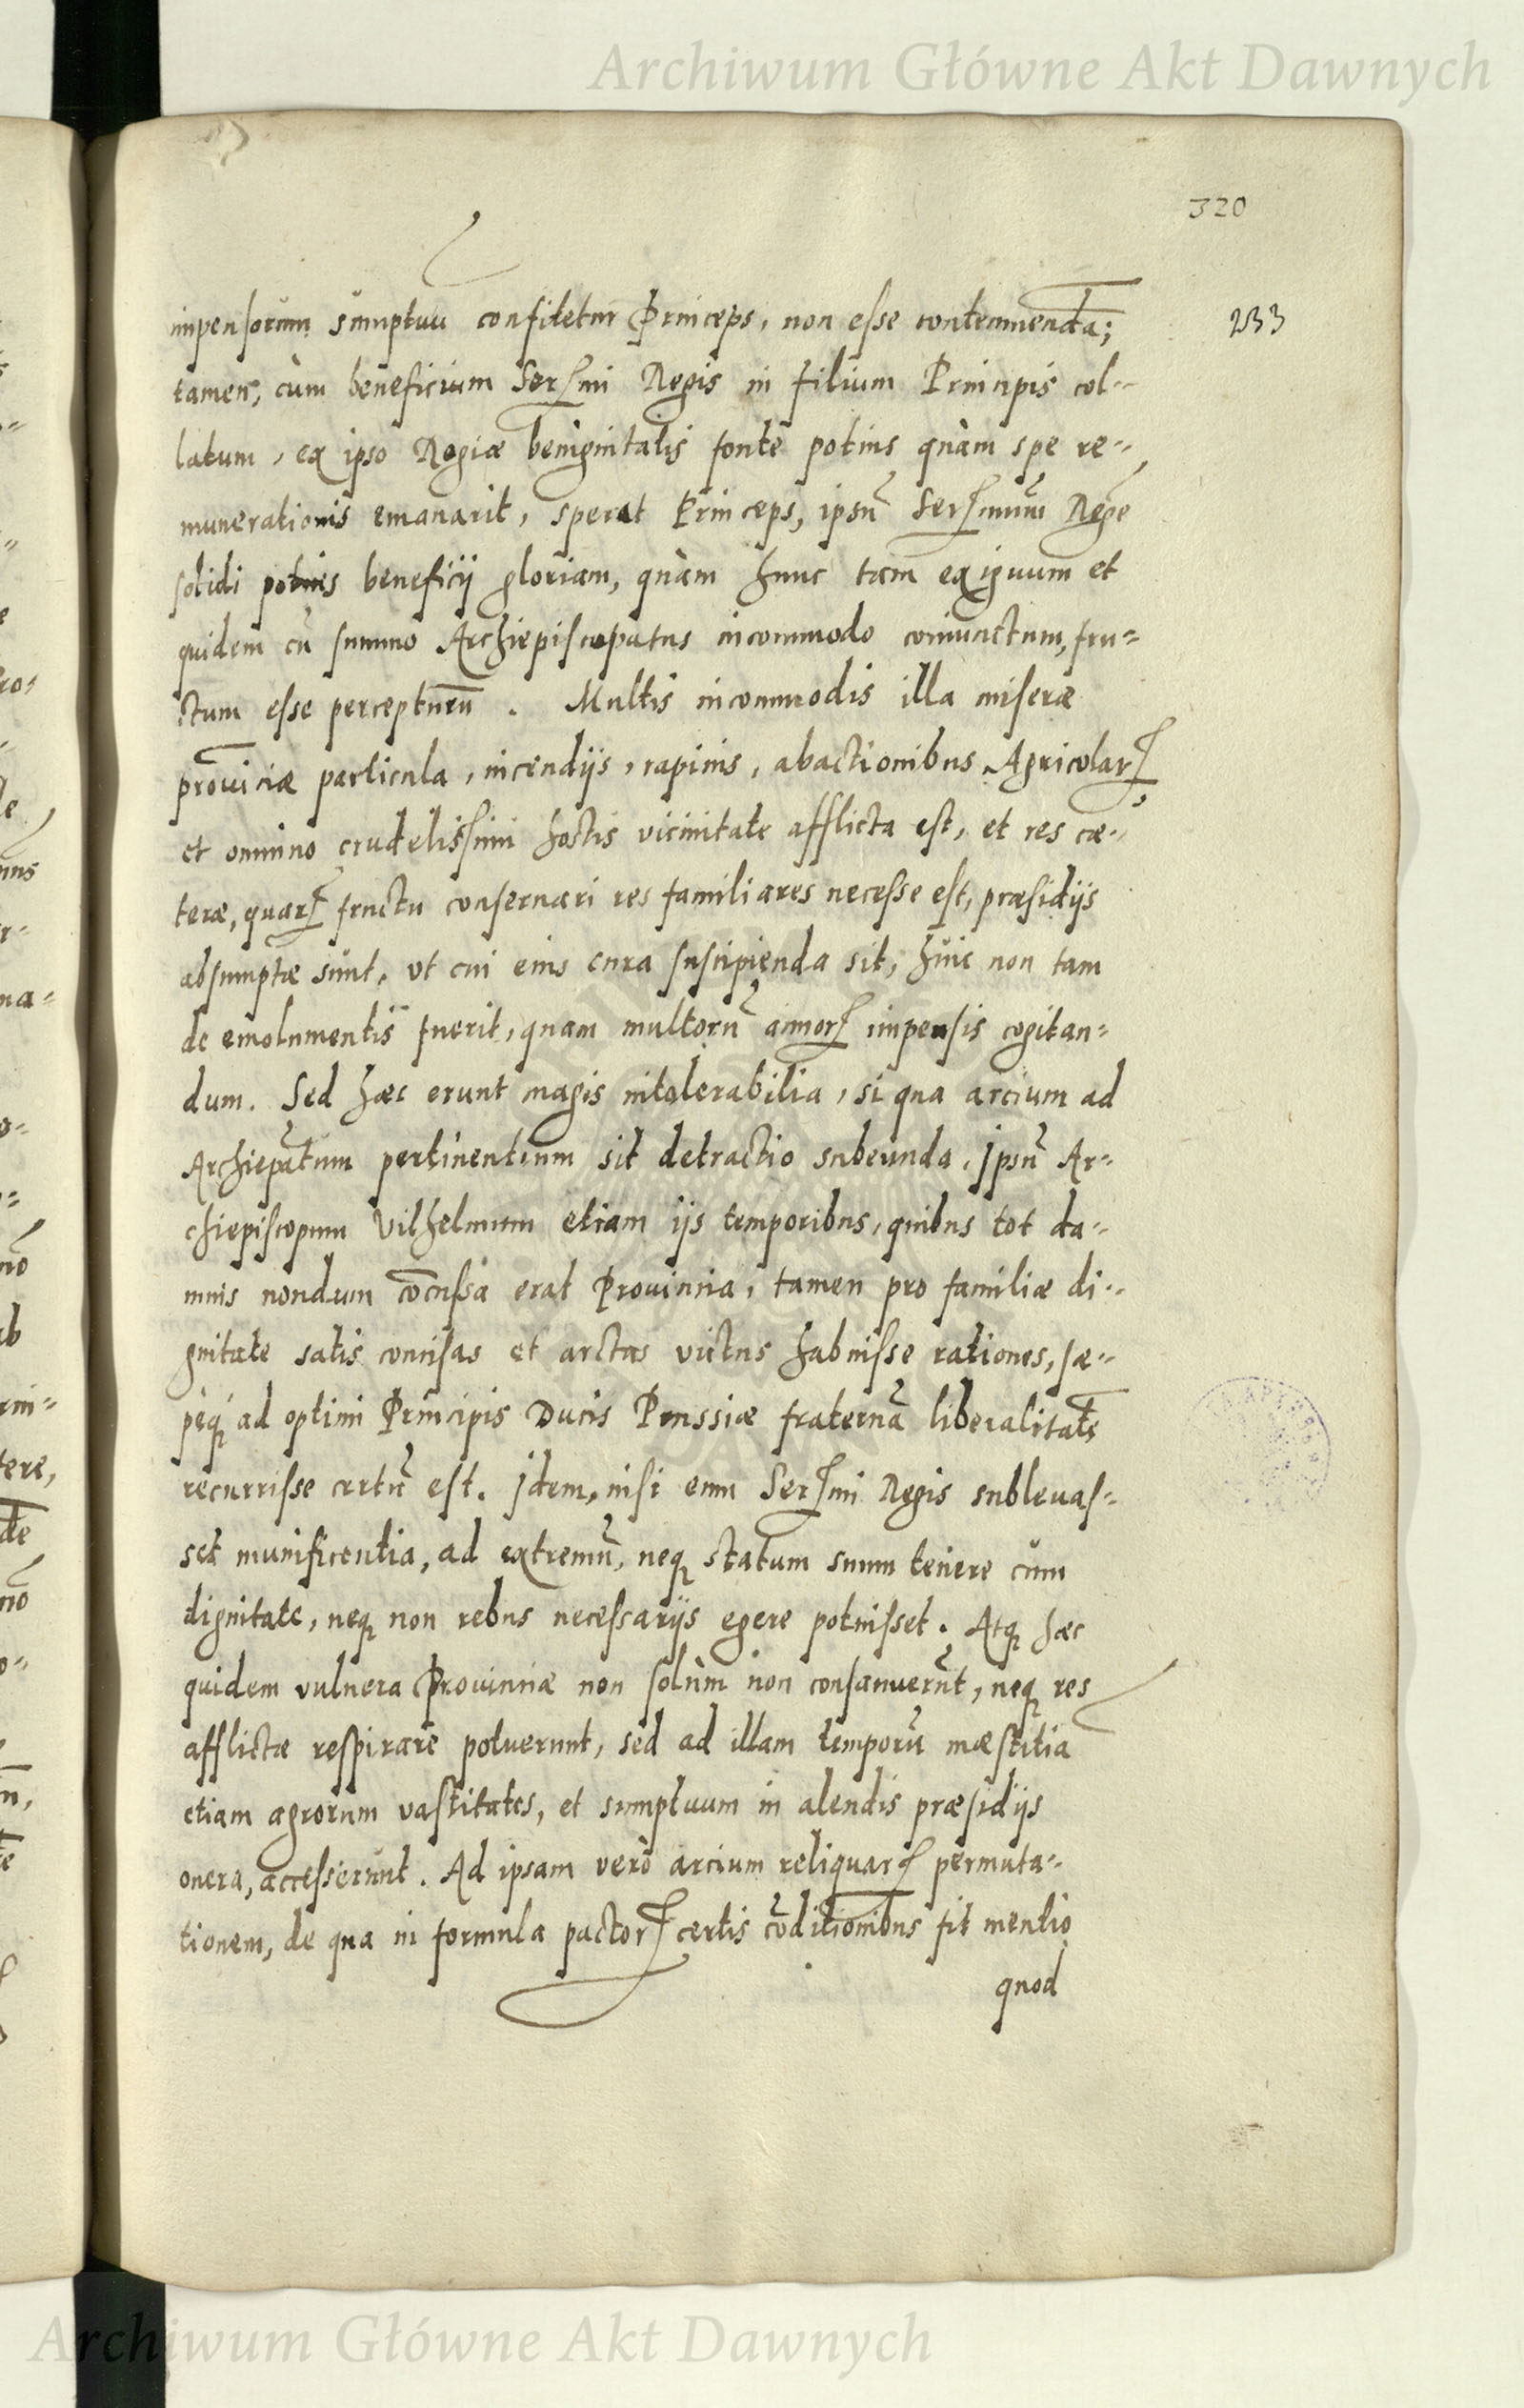 Archiwum Główne Akt Dawnych
320
233
impensorum sumptuu confitetur Princeps, non esse contemnenda;
tamen, cùm beneficium Serᷤmi Regis in filium Principis col-
latum, ex ipso Regiæ benignitatis fonte potius quàm spe re-
munerationis emanarit, sperat Princeps, ipsũ Serᷤmum Regẽ
solidi potius beneficij gloriam, quàm hunc tam exiguum et
quidem cũ summo Archiepiscopatus incommodo coniunctum, fru-
ctum esse percepturũ. Multis incommodis illa miseræ
prouiciæ particula, incendijs, rapinis, abactionibus Agricolarꝝ
et omnino crudelissimi hostis vicinitate afflicta est, et res cæ-
teræ, quarꝝ fructu conseruari res familiares necesse est, præsidijs
absumptæ sunt, vt cui eius cura suscipienda sit, huic non tam
de emolumentis fuerit, quam multorũ annorꝝ impensis cogitan-
dum. Sed hæc erunt magis intolerabilia, si qua arcium ad
Archiepãtum pertinentium sit detractio subeunda. Ipsũ Ar-
chiepiscopum Vilhelmum etiam ijs temporibus, quibus tot da-
mnis nondum cõcussa erat Prouincia, tamen pro familiæ di-
gnitate satis concisas et arctas victus habuisse rationes, sæ-
pèqꝫ ad optimi Principis Ducis Prussiæ fraternã liberalitatẽ
recurrisse certũ est. Idem, nisi eum Serᷤmi Regis subleuas-
set munificentia, ad extremũ, neqꝫ statum suum tenere cùm
dignitate, neqꝫ non rebus necessarijs egere potuisset. Atqꝫ hæc
quidem vulnera Prouinciæ non solùm non consanuerũt, neqꝫ res
afflictæ respirare potuerunt, sed ad illam temporũ mæstitia
etiam agrorum vastitates, et sumptuum in alendis præsidijs
onera, accesserunt. Ad ipsam verò arcium reliquarꝝ permuta-
tionem, de qua in formula pactorꝝ certis cõditionibus fit mentio
quod
Archiwum Główne Akt Dawnych